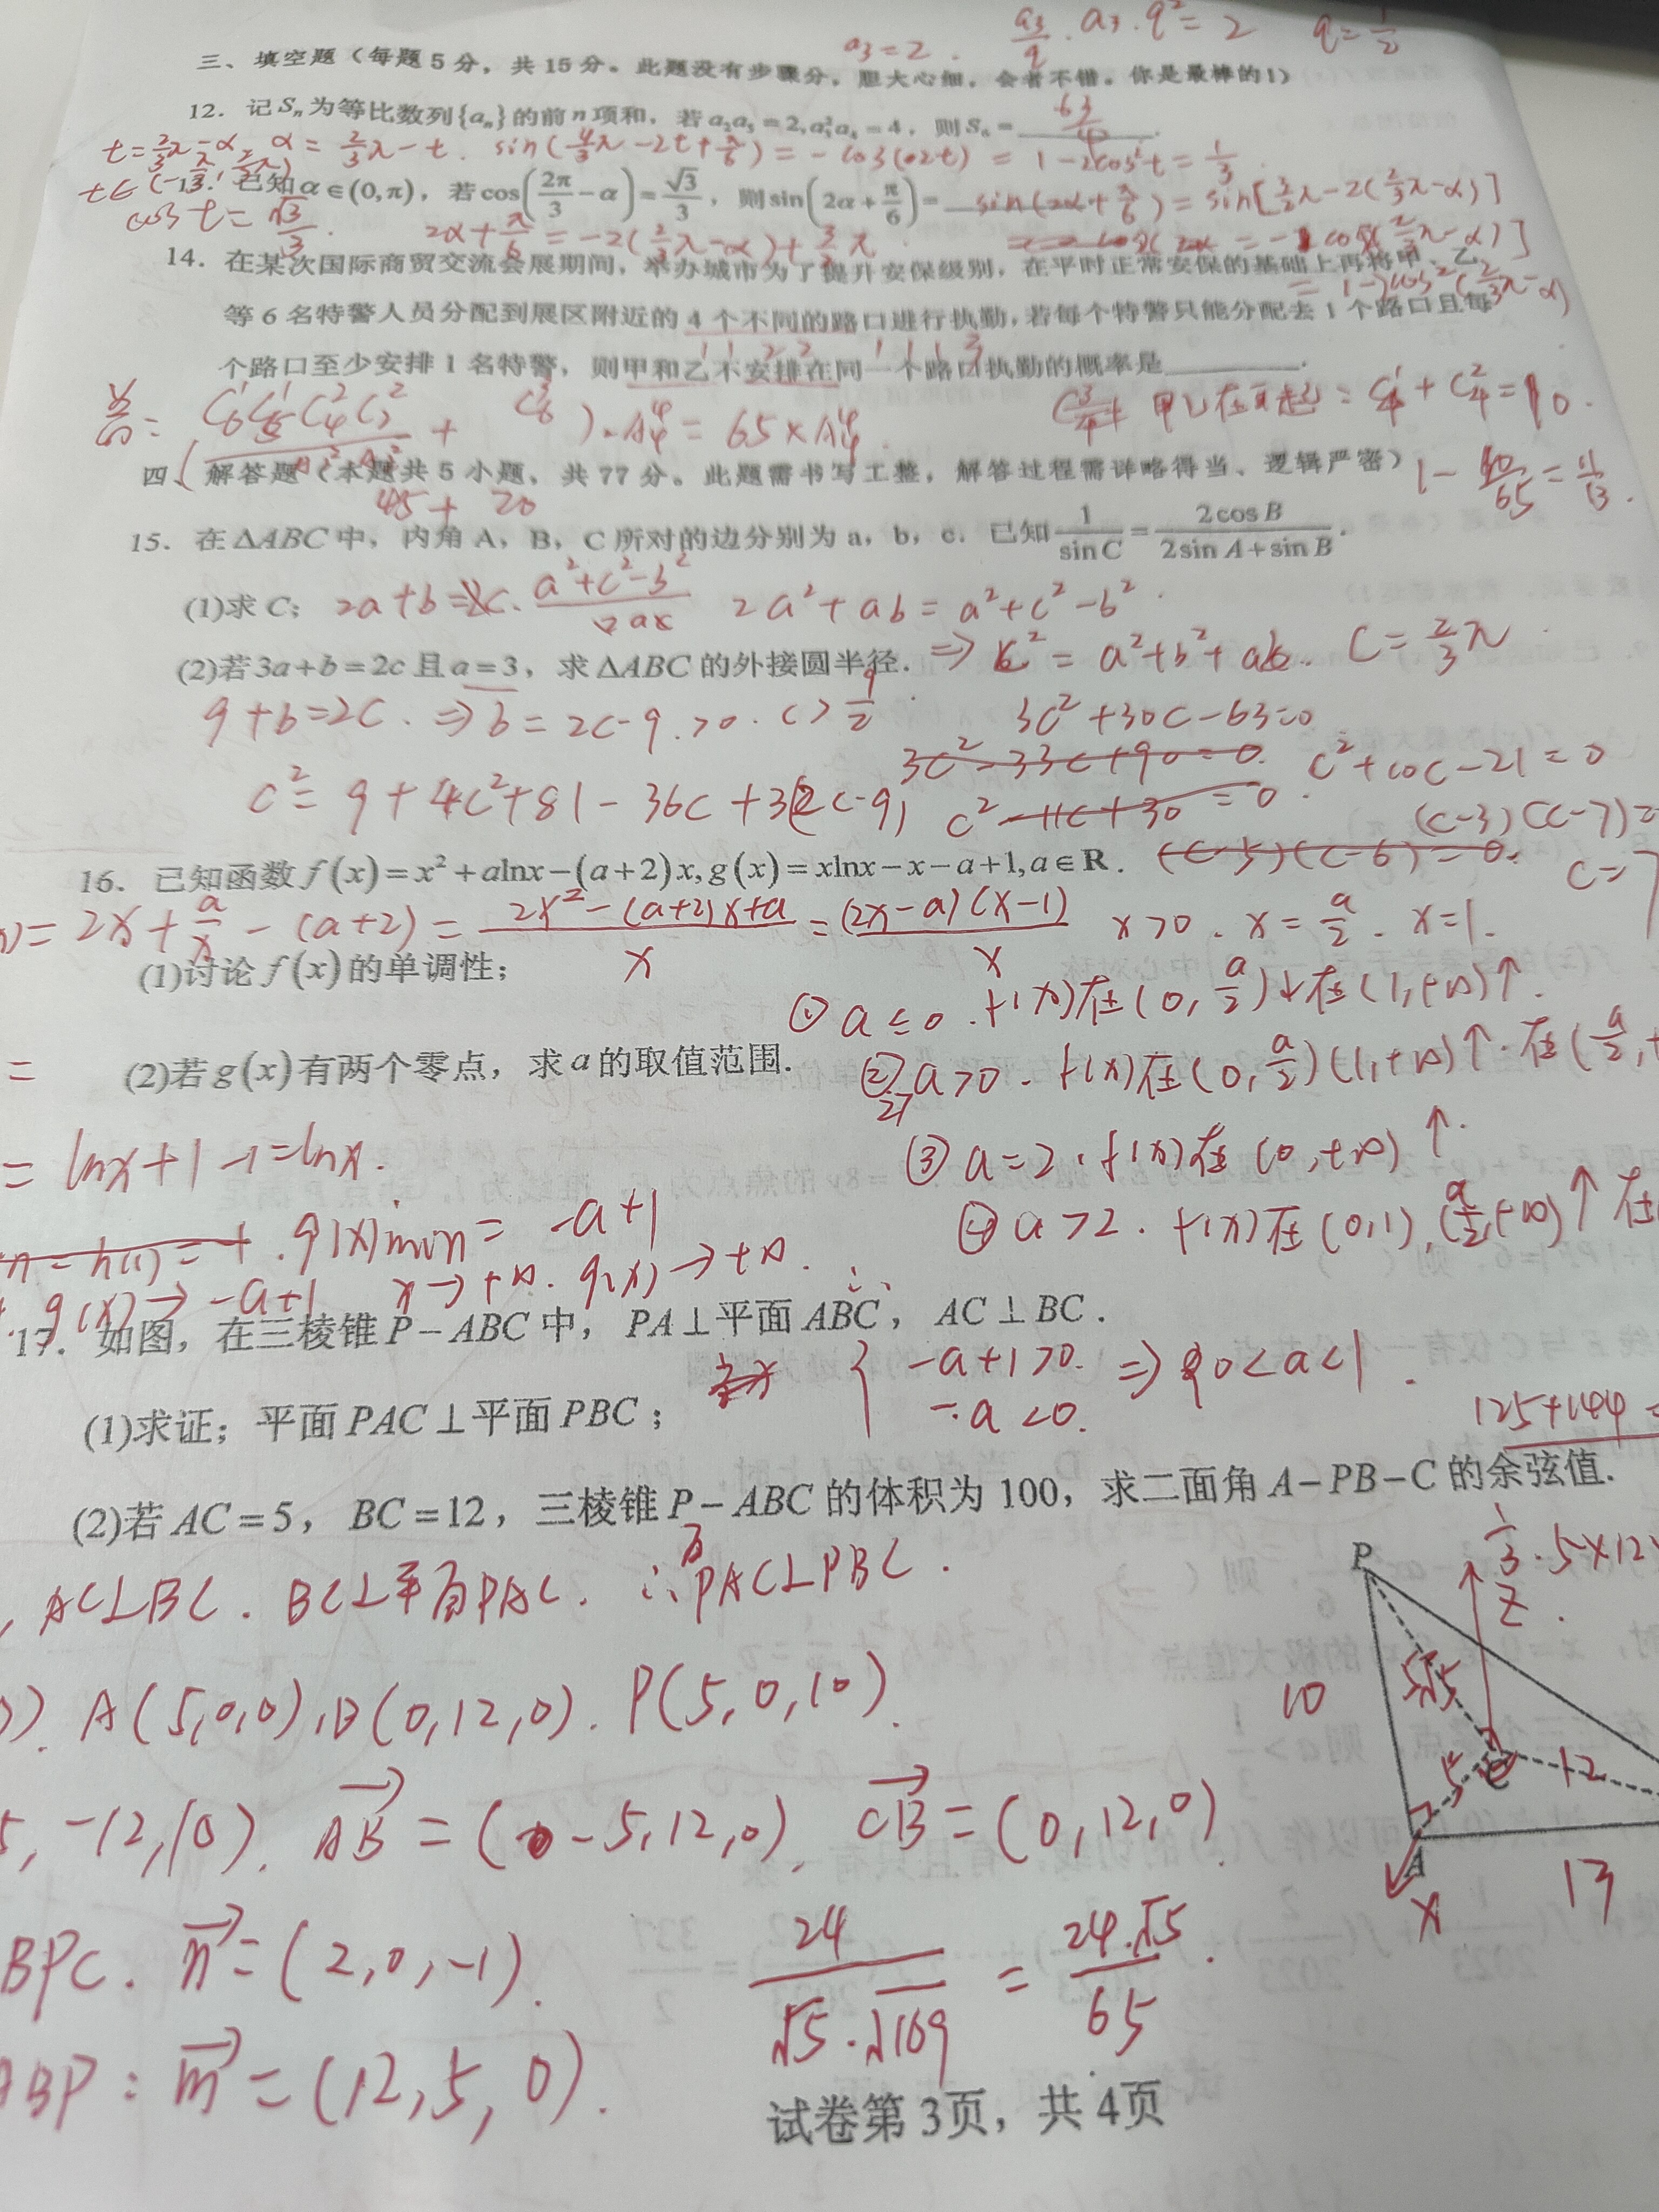 a₃=2. a₃/q · a₃·q²=2 q=1/2
三、填空题（每题5分，共15分。此题没有步骤分，胆大心细，会者不错。你是最棒的！）
12．记Sₙ为等比数列{aₙ}的前n项和，若a₂a₅=2,a₃²a₄=4，则S₆=63/4.
t=2/3π-α, α=2/3π-t. sin(4/3π-2t+π/6)=-cos(2t)=1-2cos²t=1/3
13．已知α∈(0,π)，若cos(2π/3-α)=√3/3，则sin(2α+π/6)=
sin(2α+π/6)=sin[3/2π-2(2/3π-α)]
cos t=√3/3. 2α+π/6=-2(2/3π-α)+3/2π
=1-2cos²(2/3π-α)
14．在某次国际商贸交流会展期间，举办城市为了提升安保级别，在平时正常安保的基础上再将甲、乙
等6名特警人员分配到展区附近的4个不同的路口进行执勤，若每个特警只能分配去1个路口且每
1 1 2 2 1 1 1 3
个路口至少安排1名特警，则甲和乙不安排在同一个路口执勤的概率是________.
+ C₆³)·A₄⁴=65×A₄⁴
甲乙在一起=C₄¹+C₄²=10.
四、解答题（本题共5小题，共77分。此题需书写工整，解答过程需详略得当、逻辑严密）
45+20
15．在ΔABC中，内角A，B，C所对的边分别为a，b，c．已知1/sinC=2cosB/(2sinA+sinB).
(1)求C；2a+b=2c·(a²+c²-b²)/2ac 2a²+ab=a²+c²-b².
(2)若3a+b=2c且a=3，求ΔABC的外接圆半径．⇒c²=a²+b²+ab. C=2/3π.
9+b=2c.⇒b=2c-9>0.c>9/2. 3c²+30c-63=0
3c²-33c+90=0. c²+10c-21=0
c²=9+4c²+81-36c+3(2c-9) c²-11c+30=0. (c-3)(c-7)=
(c-5)(c-6)=0. c=7
16．已知函数f(x)=x²+alnx-(a+2)x,g(x)=xlnx-x-a+1,a∈R．
)=2x+a/x-(a+2)=(2x²-(a+2)x+a)/x=(2x-a)(x-1)/x x>0. x=a/2. x=1.
(1)讨论f(x)的单调性；
① a≤0.f(x)在(0,a/2)↓在(1,+∞)↑.
(2)若g(x)有两个零点，求a的取值范围.
② 2>a>0.f(x)在(0,a/2)(1,+∞)↑.在(a/2,
=lnx+1-1=lnx.
③ a=2.f(x)在(0,+∞)↑.
g(x)min=-a+1
④ a>2.f(x)在(0,1),(a/2,+∞)↑在
g(x)→-a+1 x→+∞.g(x)→+∞.∴
17．如图，在三棱锥P-ABC中，PA⊥平面ABC，AC⊥BC．
{-a+1>0. -a<0. ⇒0<a<1.
(1)求证；平面PAC⊥平面PBC；
125+144=
(2)若AC=5，BC=12，三棱锥P-ABC的体积为100，求二面角A-PB-C的余弦值.
1/3·5×12
AC⊥BC.BC⊥平面PAC.∴面PAC⊥PBC.
P
Z
).A(5,0,0),B(0,12,0).P(5,0,10).
10 5√5
5 C 12
5,-12,10).AB=(-5,12,0).CB=(0,12,0).
A
x 13
BPC.n=(2,0,-1). 24/(√5·√169)=24·√5/65.
ABP:m=(12,5,0).
试卷第3页，共4页